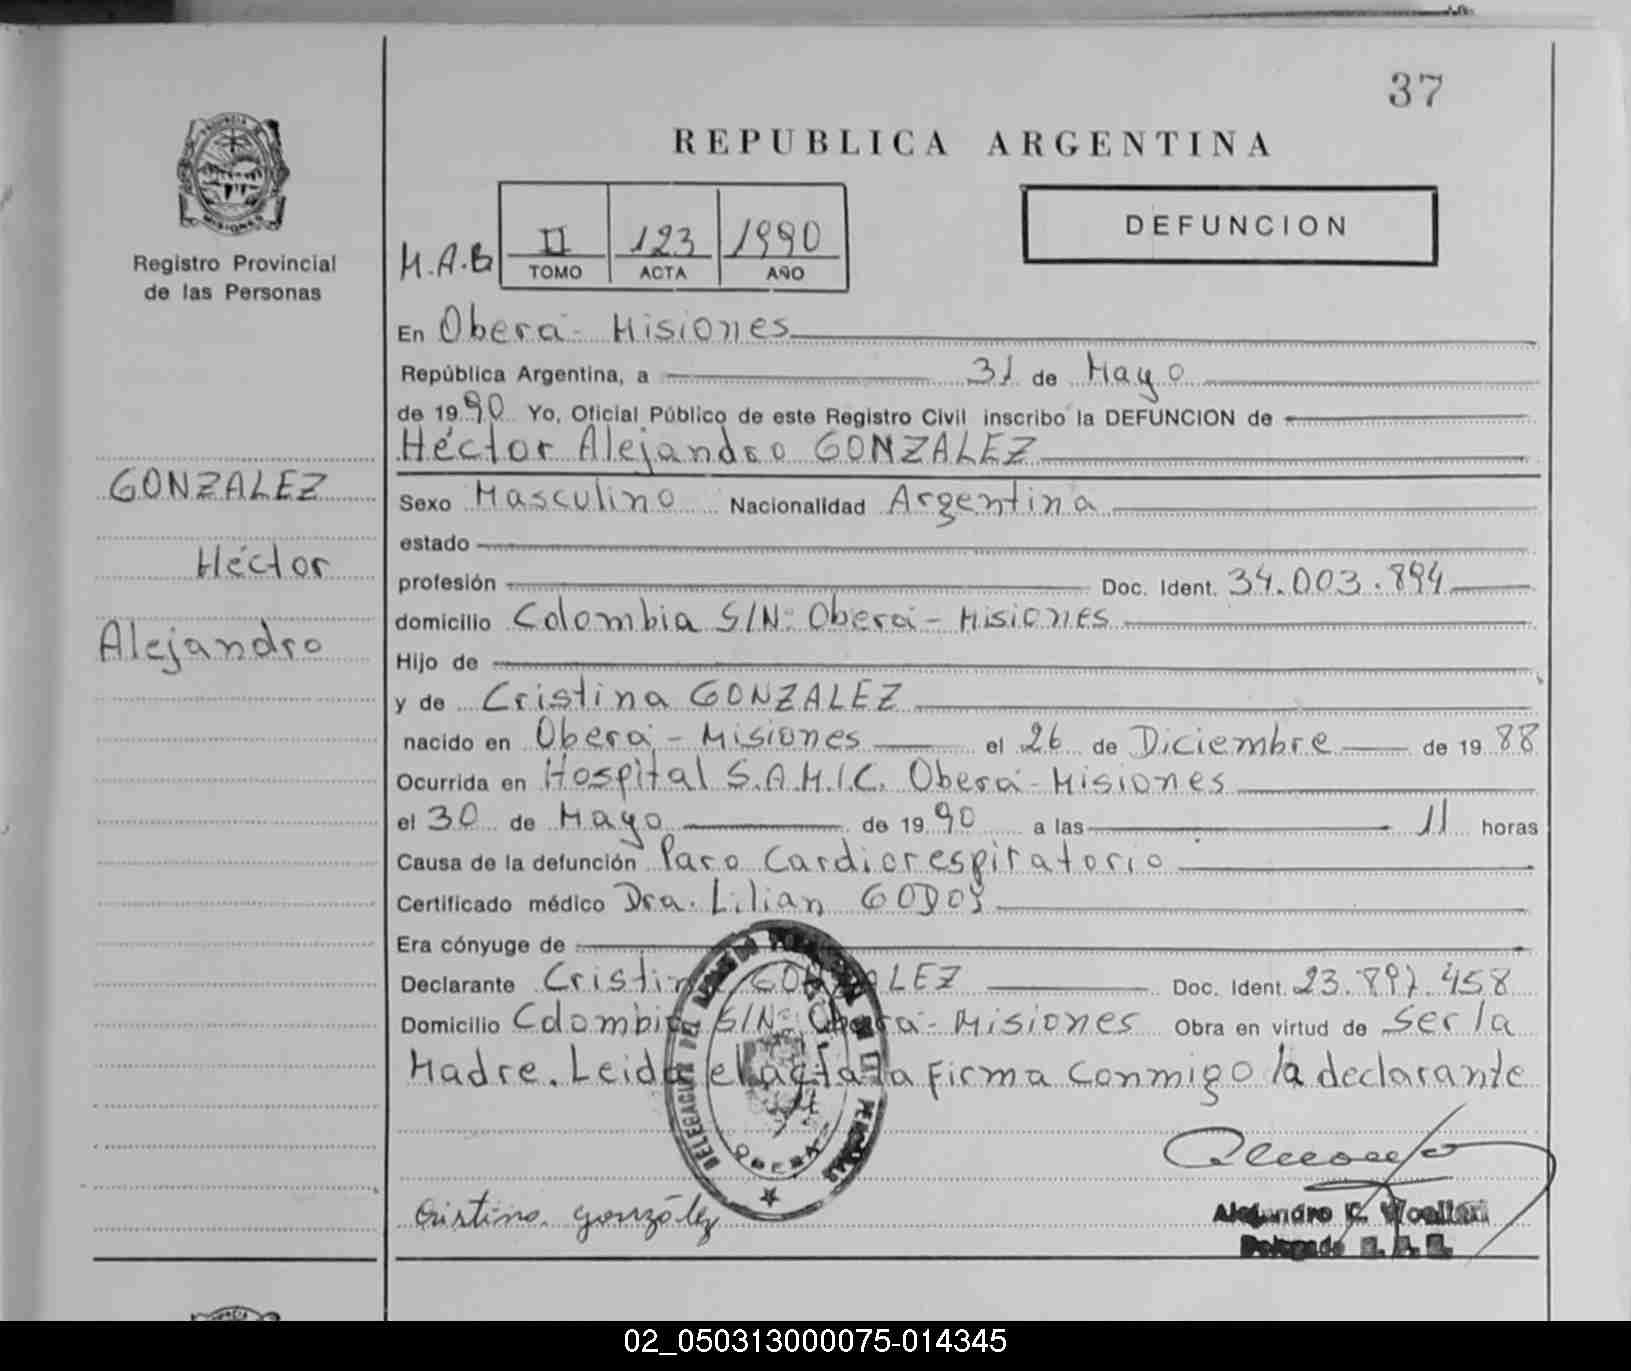 37
REPUBLICA ARGENTINA
PROVINCIA DE
MISIONES
Registro Provincial
de las Personas
DEFUNCION
M.A.B
II 123 1990
TOMO ACTA AÑO
En Oberá - Misiones
República Argentina, a 31 de Mayo
de 1990 Yo, Oficial Público de este Registro Civil inscribo la DEFUNCION de
Héctor Alejandro GONZALEZ
GONZALEZ
Héctor
Alejandro
Sexo Masculino Nacionalidad Argentina
estado
profesión Doc. Ident. 34.003.894
domicilio Colombia S/Nº Oberá - Misiones
Hijo de
y de Cristina GONZALEZ
nacido en Oberá - Misiones el 26 de Diciembre de 1988
Ocurrida en Hospital S.A.M.I.C. Oberá - Misiones
el 30 de Mayo de 1990 a las 11 horas
Causa de la defunción Paro Cardiorespiratorio
Certificado médico Dra. Lilian GODOY
Era cónyuge de
Declarante Cristina GONZALEZ Doc. Ident. 23.897.458
Domicilio Colombia S/Nº Oberá - Misiones Obra en virtud de ser la
Madre. Leida el acta la firma conmigo la declarante
DELEGACION DEL DE LAS PERSONAS
OBERA
Cristina González
Alejandro
Delegado
02_050313000075-014345